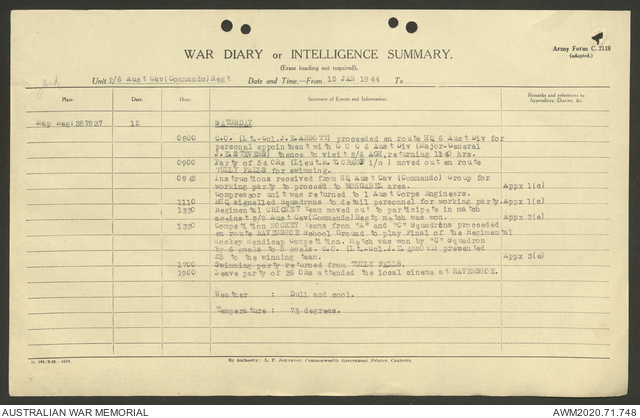 WAR DIARY or INTELLIGENCE SUMMARY.
Army Form C. 2118
(adapted.)
(Erase heading not required).
Unit 2/6 Aust Cav(Commando)Regt Date and Time.—From 15 JAN 1944 To
Place. Date. Hour. Summary of Events and Information. Remarks and references to
Appendices, Diaries, &c.
Map Reg: 15 SATURDAY
0800 C.O. (Lt.-Col.J.E.ABBOTT) proceeded en route HQ 6 Aust Div for
personal appointment with G O C 6 Aust Div (Major-General
J.E.STEVENS) thence to visit 2/6 AGH, returning hrs.
0900 Party of 54 ORs (Lieut. i/c) moved out en route
TULLY FALLS for swimming.
0945 Instructions received from HQ Aust Cav (Commando) Group for
working party to proceed to area. Appx 1(c)
Compressor unit was returned to 1 Aust Corps Engineers.
1110 RHQ signalled Squadrons to detail personnel for working party. Appx 1(c)
1230 Regimental CRICKET Team moved out to participate in match
against Aust Cav(Commando)Regt; match won by Appx 2(e)
1330 Competition HOCKEY Teams from "A" and "C" Squadrons proceeded
en route RAVENSHOE School Ground to play Final of the Regimental
Hockey Handicap Competition. Match was won by "C" Squadron
by 6 goals to goals. C.O. (Lt.-Col.J.E. ABBOTT) presented
£5 to the winning team. Appx 2(e)
1700 Swimming party returned from TULLY FALLS.
1900 Leave party of 36 ORs attended the local cinema at RAVENSHOE.
Weather : Dull and cool.
Temperature : 75 degrees.
By Authority: L. F. Johnston, Commonwealth Government Printer, Canberra.
AUSTRALIAN WAR MEMORIAL AWM2020.71.748